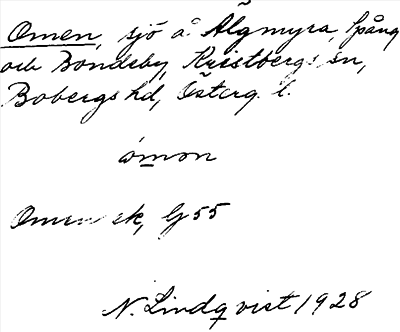 Omen, sjö å Älgmyra, Spång
och Bondeby, Kristbergs sn,
Bobergs hd, Österg. l.
ómon
Omen ek, G 55
N. Lindqvist 1928